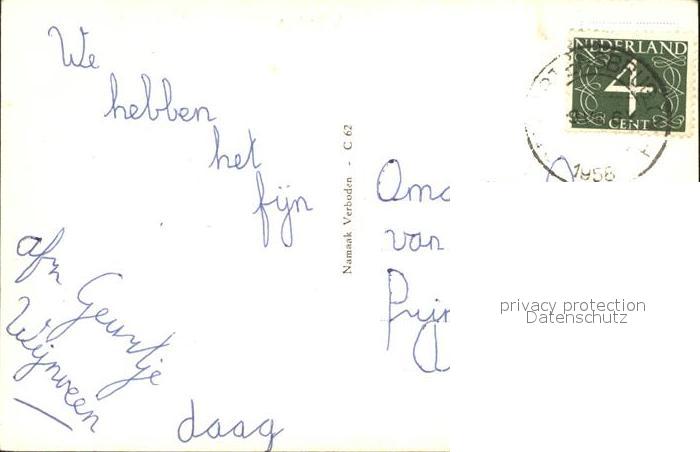 We
hebben
het
fijn
afz
Geurtje
Wijnveen
daag
Namaak Verboden - C 62
NEDERLAND
4
CENT
1956
Oma
van
privacy protection
Datenschutz